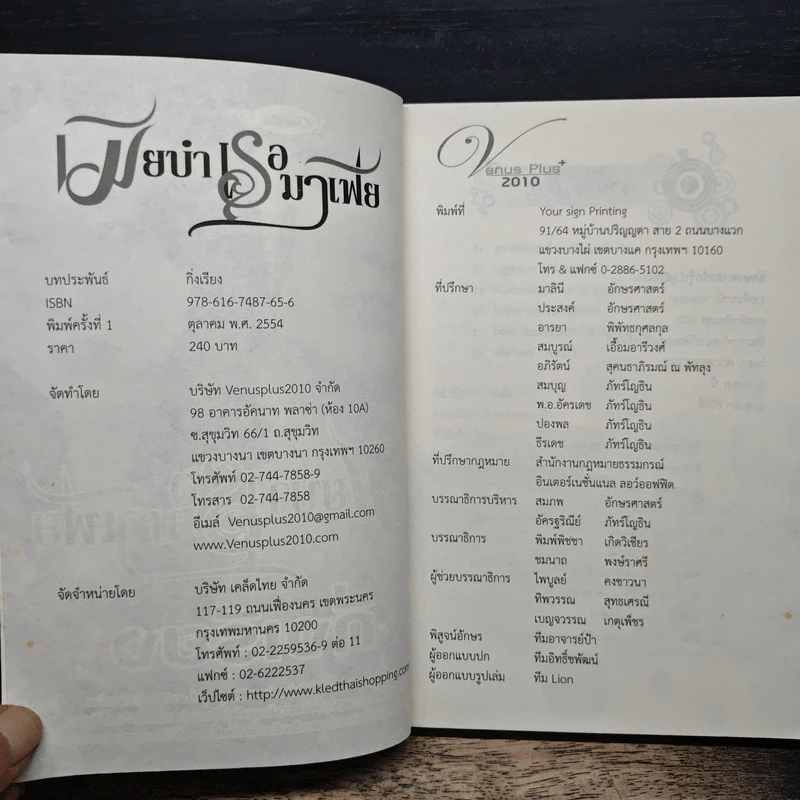 เมียบำเรอมาเฟีย
บทประพันธ์ กิ่งเรียง
ISBN 978-616-7487-65-6
พิมพ์ครั้งที่ 1 ตุลาคม พ.ศ. 2554
ราคา 240 บาท
จัดทำโดย บริษัท Venusplus2010 จำกัด
98 อาคารอัคนาท พลาซ่า (ห้อง 10A)
ซ.สุขุมวิท 66/1 ถ.สุขุมวิท
แขวงบางนา เขตบางนา กรุงเทพฯ 10260
โทรศัพท์ 02-744-7858-9
โทรสาร 02-744-7858
อีเมล์ Venusplus2010@gmail.com
www.Venusplus2010.com
จัดจำหน่ายโดย บริษัท เคล็ดไทย จำกัด
117-119 ถนนเฟื่องนคร เขตพระนคร
กรุงเทพมหานคร 10200
โทรศัพท์ : 02-2259536-9 ต่อ 11
แฟกซ์ : 02-6222537
เว็ปไซต์ : http://www.kledthaishopping.com
Venus Plus+
2010
พิมพ์ที่ Your sign Printing
91/64 หมู่บ้านปริญญดา สาย 2 ถนนบางแวก
แขวงบางไผ่ เขตบางแค กรุงเทพฯ 10160
โทร & แฟกซ์ 0-2886-5102
ที่ปรึกษา มาลินี อักษรศาสตร์
ประสงค์ อักษรศาสตร์
อารยา พิพัทธกุศลกุล
สมบูรณ์ เอื้อมอารีวงศ์
อภิรัตน์ สุคนธาภิรมณ์ ณ พัทลุง
สมบุญ ภัทร์โญธิน
พ.อ.อัครเดช ภัทร์โญธิน
ปองพล ภัทร์โญธิน
ธีรเดช ภัทร์โญธิน
ที่ปรึกษากฎหมาย สำนักงานกฎหมายธรรมกรณ์
อินเตอร์เนชั่นแนล ลอว์ออฟฟิต
บรรณาธิการบริหาร สมภพ อักษรศาสตร์
อัครฐริณีย์ ภัทร์โญธิน
บรรณาธิการ พิมพ์พิชชา เกิดวิเชียร
ชมนาถ พงษ์ราศรี
ผู้ช่วยบรรณาธิการ ไพบูลย์ คงชาวนา
ทิพวรรณ สุทธเศรณี
เบญจวรรณ เกตุเพ็ชร
พิสูจน์อักษร ทีมอาจารย์ป้า
ผู้ออกแบบปก ทีมอิทธิ์ชพัฒน์
ผู้ออกแบบรูปเล่ม ทีม Lion